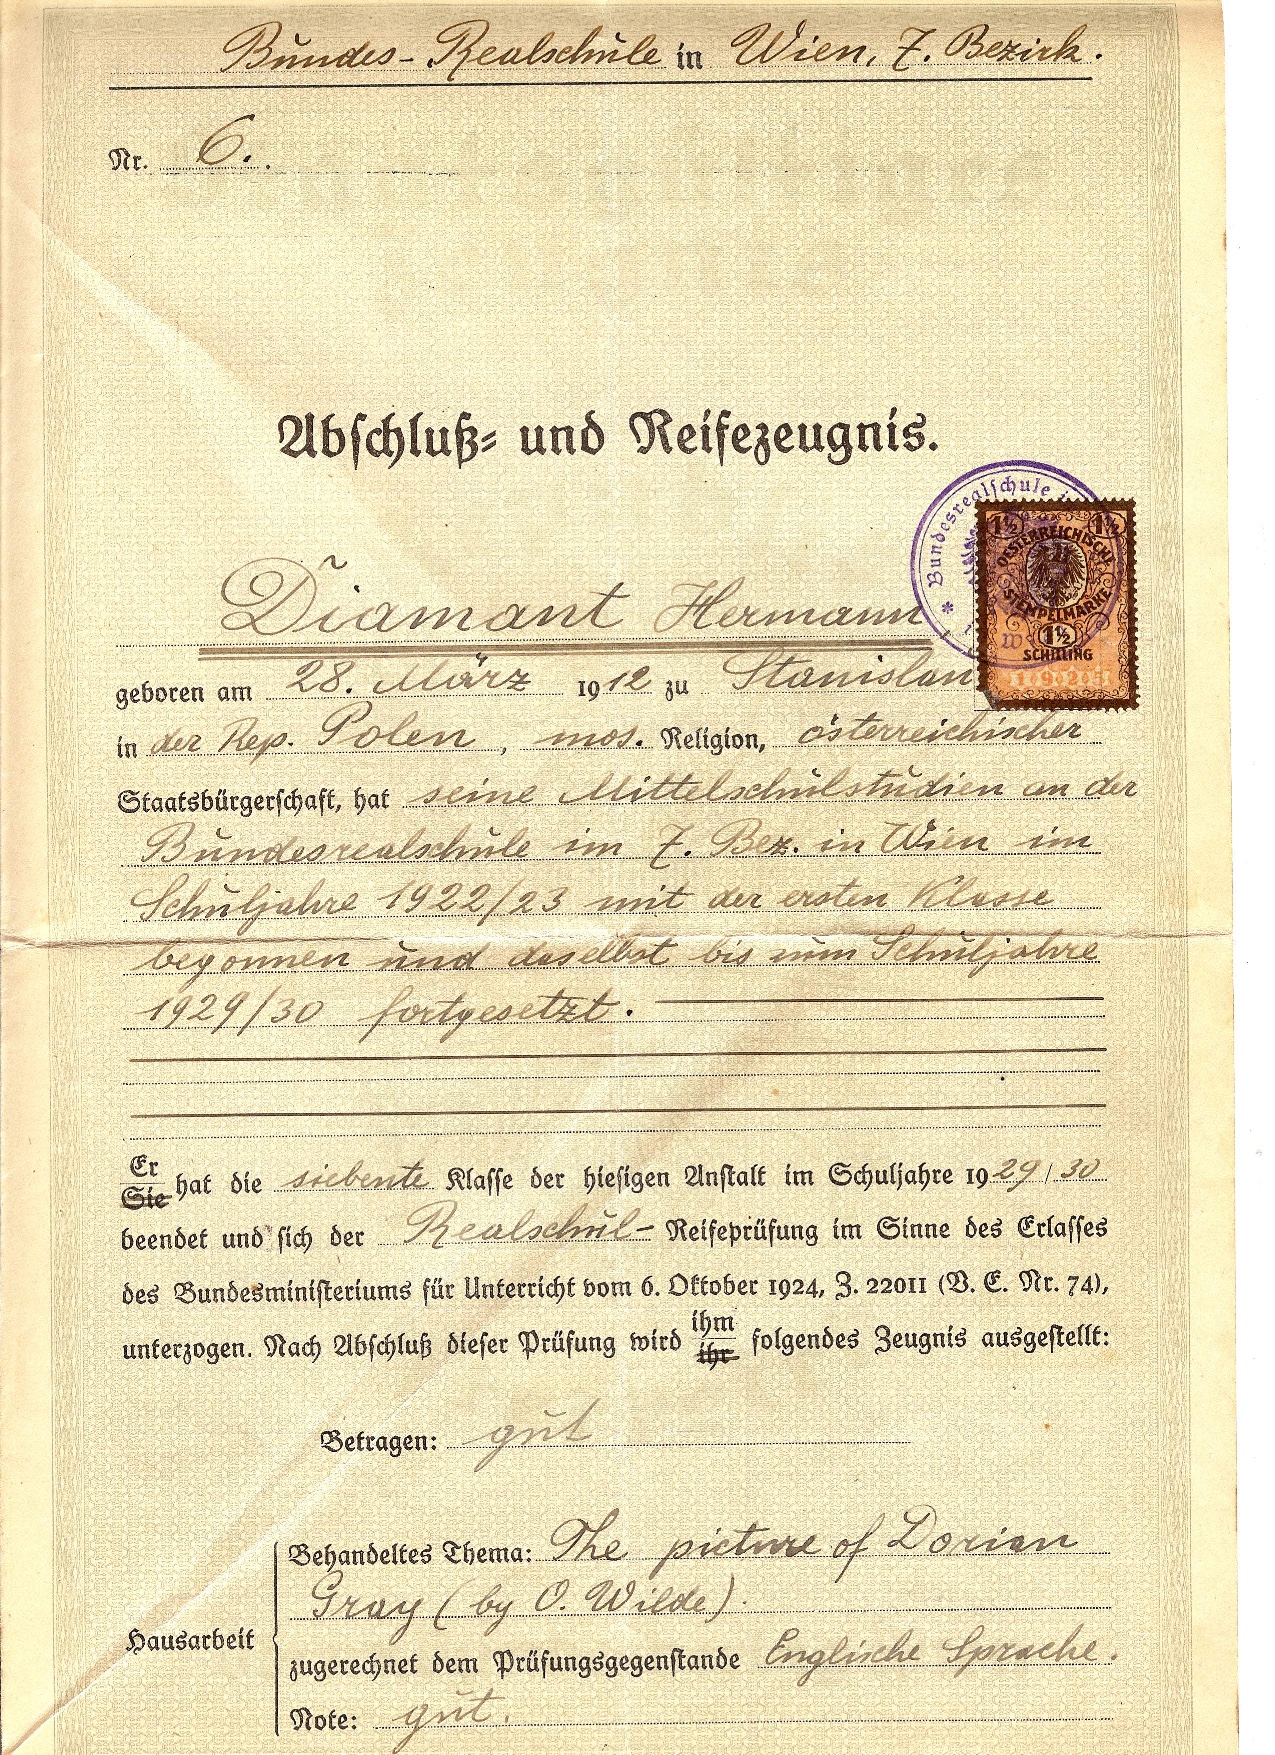 Bundes-Realschule in Wien, 7. Bezirk.
Nr. 6.
Abschluß- und Reifezeugnis.
Bundesrealschule
1½ 1½
OESTERREICHISCHE
STEMPELMARKE
1½
SCHILLING
Diamant Hermann
geboren am 28. März 1912 zu Stanislau
in der Rep. Polen, mos. Religion, österreichischer
Staatsbürgerschaft, hat seine Mittelschulstudien an der
Bundesrealschule im 7. Bez. in Wien im
Schuljahre 1922/23 mit der ersten Klasse
begonnen und daselbst bis zum Schuljahre
1929/30 fortgesetzt.
Er
Sie hat die siebente Klasse der hiesigen Anstalt im Schuljahre 1929/30
beendet und sich der Realschul- Reifeprüfung im Sinne des Erlasses
des Bundesministeriums für Unterricht vom 6. Oktober 1924, Z. 22011 (V. E. Nr. 74),
unterzogen. Nach Abschluß dieser Prüfung wird ihm folgendes Zeugnis ausgestellt:
ihr
Betragen: gut
Behandeltes Thema: The picture of Dorian
Gray (by O. Wilde).
Hausarbeit
zugerechnet dem Prüfungsgegenstande Englische Sprache.
Note: gut.